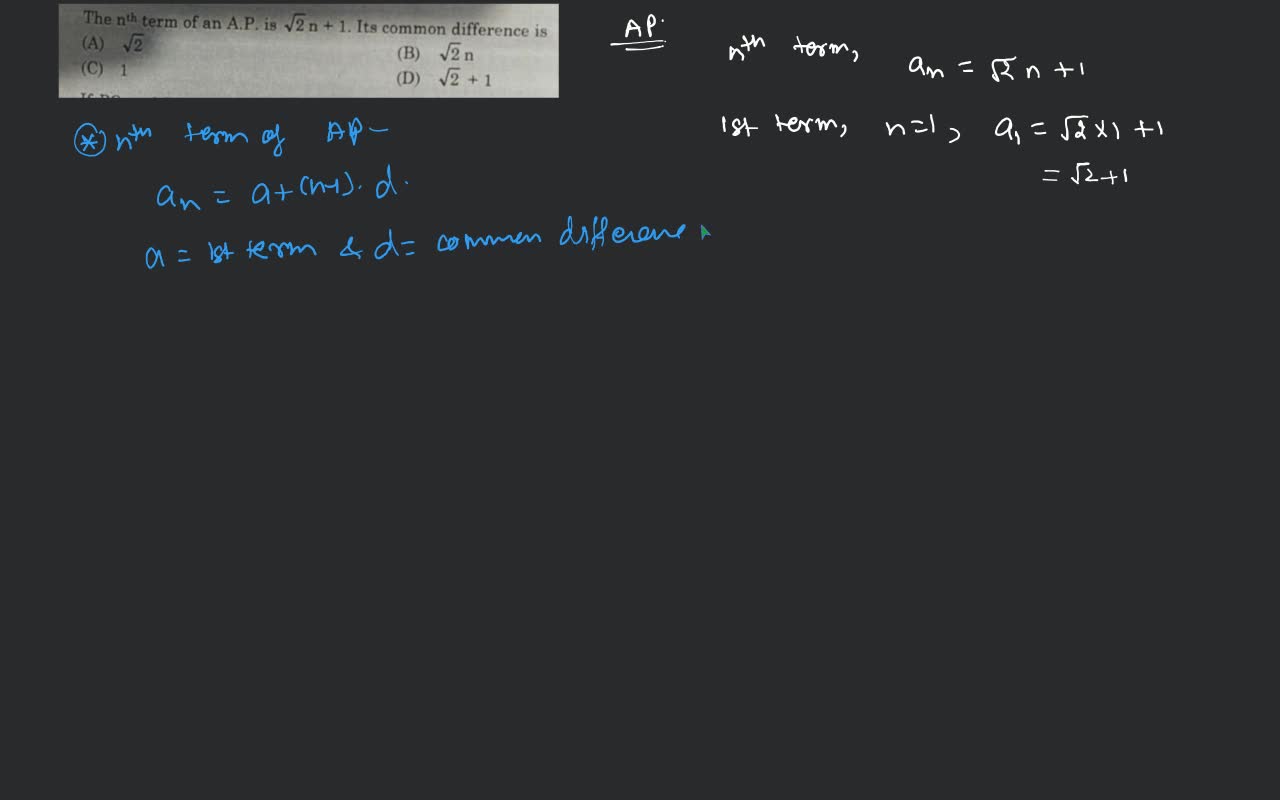 The nth term of an A.P. is √2 n + 1. Its common difference is
(A) √2
(B) √2 n
(C) 1
(D) √2 + 1
AP.
nth term, an = √2 n + 1
1st term, n=1, a1 = √2 × 1 + 1
= √2 + 1
* nth term of AP -
an = a + (n-1). d.
a = 1st term & d = common difference